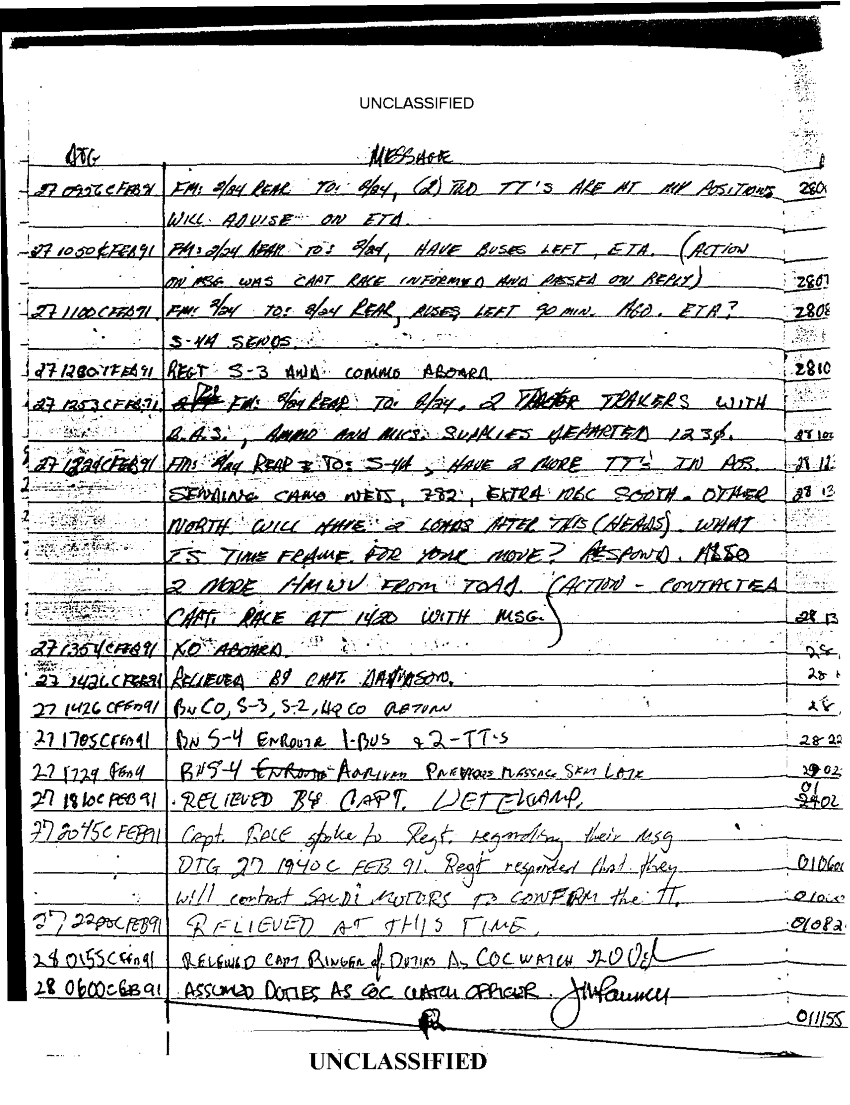 UNCLASSIFIED
DTG MESSAGE
27 0956C FEB91 FM: 2/24 REAR TO: 2/24, (2) TT'S ARE AT MY POSITIONS 280
WILL ADVISE ON ETA.
27 1050C FEB91 FM: 2/24 REAR TO: 2/24, HAVE BUSES LEFT, ETA. (ACTION
ON MSG WAS CAPT RACE INFORMED AND PASSED ON REPLY) 2807
27 1100C FEB91 FM: 2/24 TO: 2/24 REAR, BUSES LEFT 90 MIN. AGO. ETA? 2808
S-4A SENDS.
FEB91 REGT S-3 AND COMMO ABOARD 2810
27 1253C FEB91 FM: 2/24 REAR TO: 2/24. 2 TRACTOR TRAILERS WITH
B.A.S., AMMO AND MICS. SUPPLIES DEPARTED 1230.
FEB91 FM: 2/24 REAR TO: S-4A, HAVE 2 MORE TT'S IN POS. 28 12
SENDING CAMO NETS, 782, EXTRA NBC SOUTH. OTHER 28 13
NORTH WILL HAVE 2 LOADS AFTER THIS (HEADS). WHAT
IS TIME FRAME FOR YOUR MOVE? RESPOND. ALSO
2 MORE HMWV FROM TOAD. (ACTION - CONTACTED
CAPT. RACE AT 1420 WITH MSG.) 28 13
27 1354C FEB91 XO ABOARD. 28
27 1426C FEB91 RELIEVED BY CAPT. 28
27 1426C FEB91 BN CO, S-3, S-2, HQ CO RETURN 28
27 1705C FEB91 BN S-4 ENROUTE 1-BUS & 2-TT'S 28 22
27 1729 FEB91 BN S-4 ENROUTE ARRIVED PREVIOUS MESSAGE SENT LATE
27 1810C FEB91 RELIEVED BY CAPT. WETEKAMP. 01 02
27 2045C FEB91 Capt. RACE spoke to Regt. regarding their MSG
DTG 27 1940C FEB 91. Regt responded that they 010600
will contact SAUDI MOTORS TO CONFIRM the TT.
27 FEB91 RELIEVED AT THIS TIME. 01082
28 0155C FEB91 RELIEVED CAPT RINGER of DUTIES AS COC WATCH
28 0600C FEB91 ASSUMED DUTIES AS COC WATCH OFFICER.
011155
UNCLASSIFIED